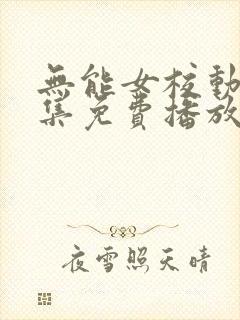 無能女校動
集免費播放
夜雪照天晴